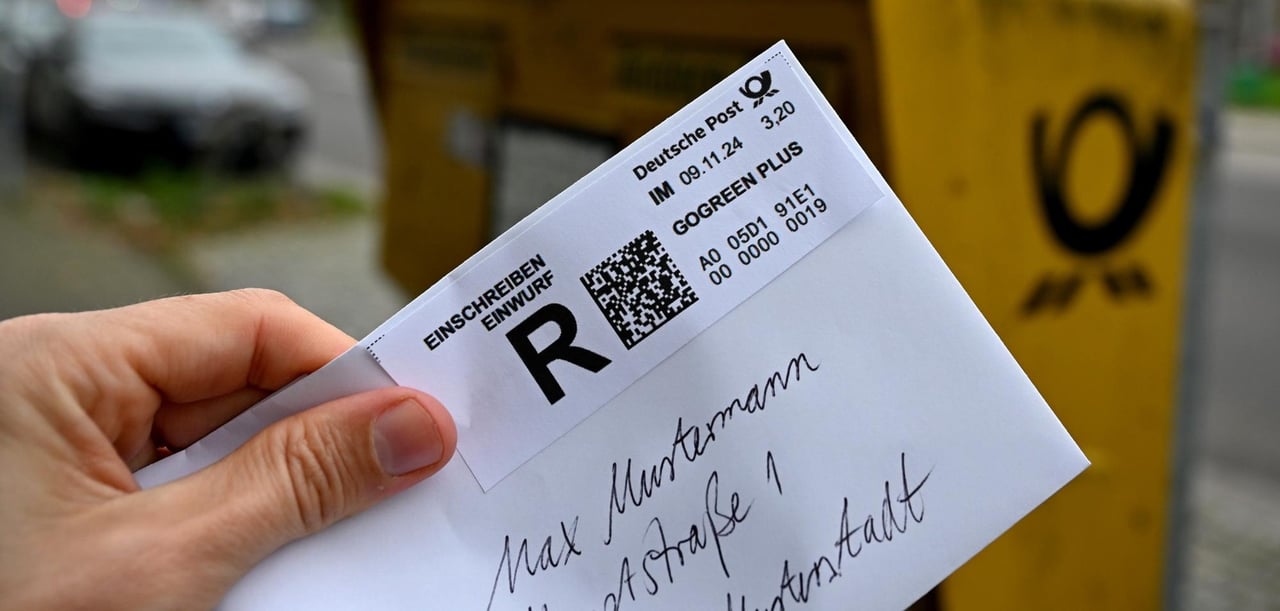 Deutsche Post
IM 09.11.24 3,20
GOGREEN PLUS
A0 05D1 91E1
00 0000 0019
EINSCHREIBEN
EINWURF
R
Max Mustermann
1